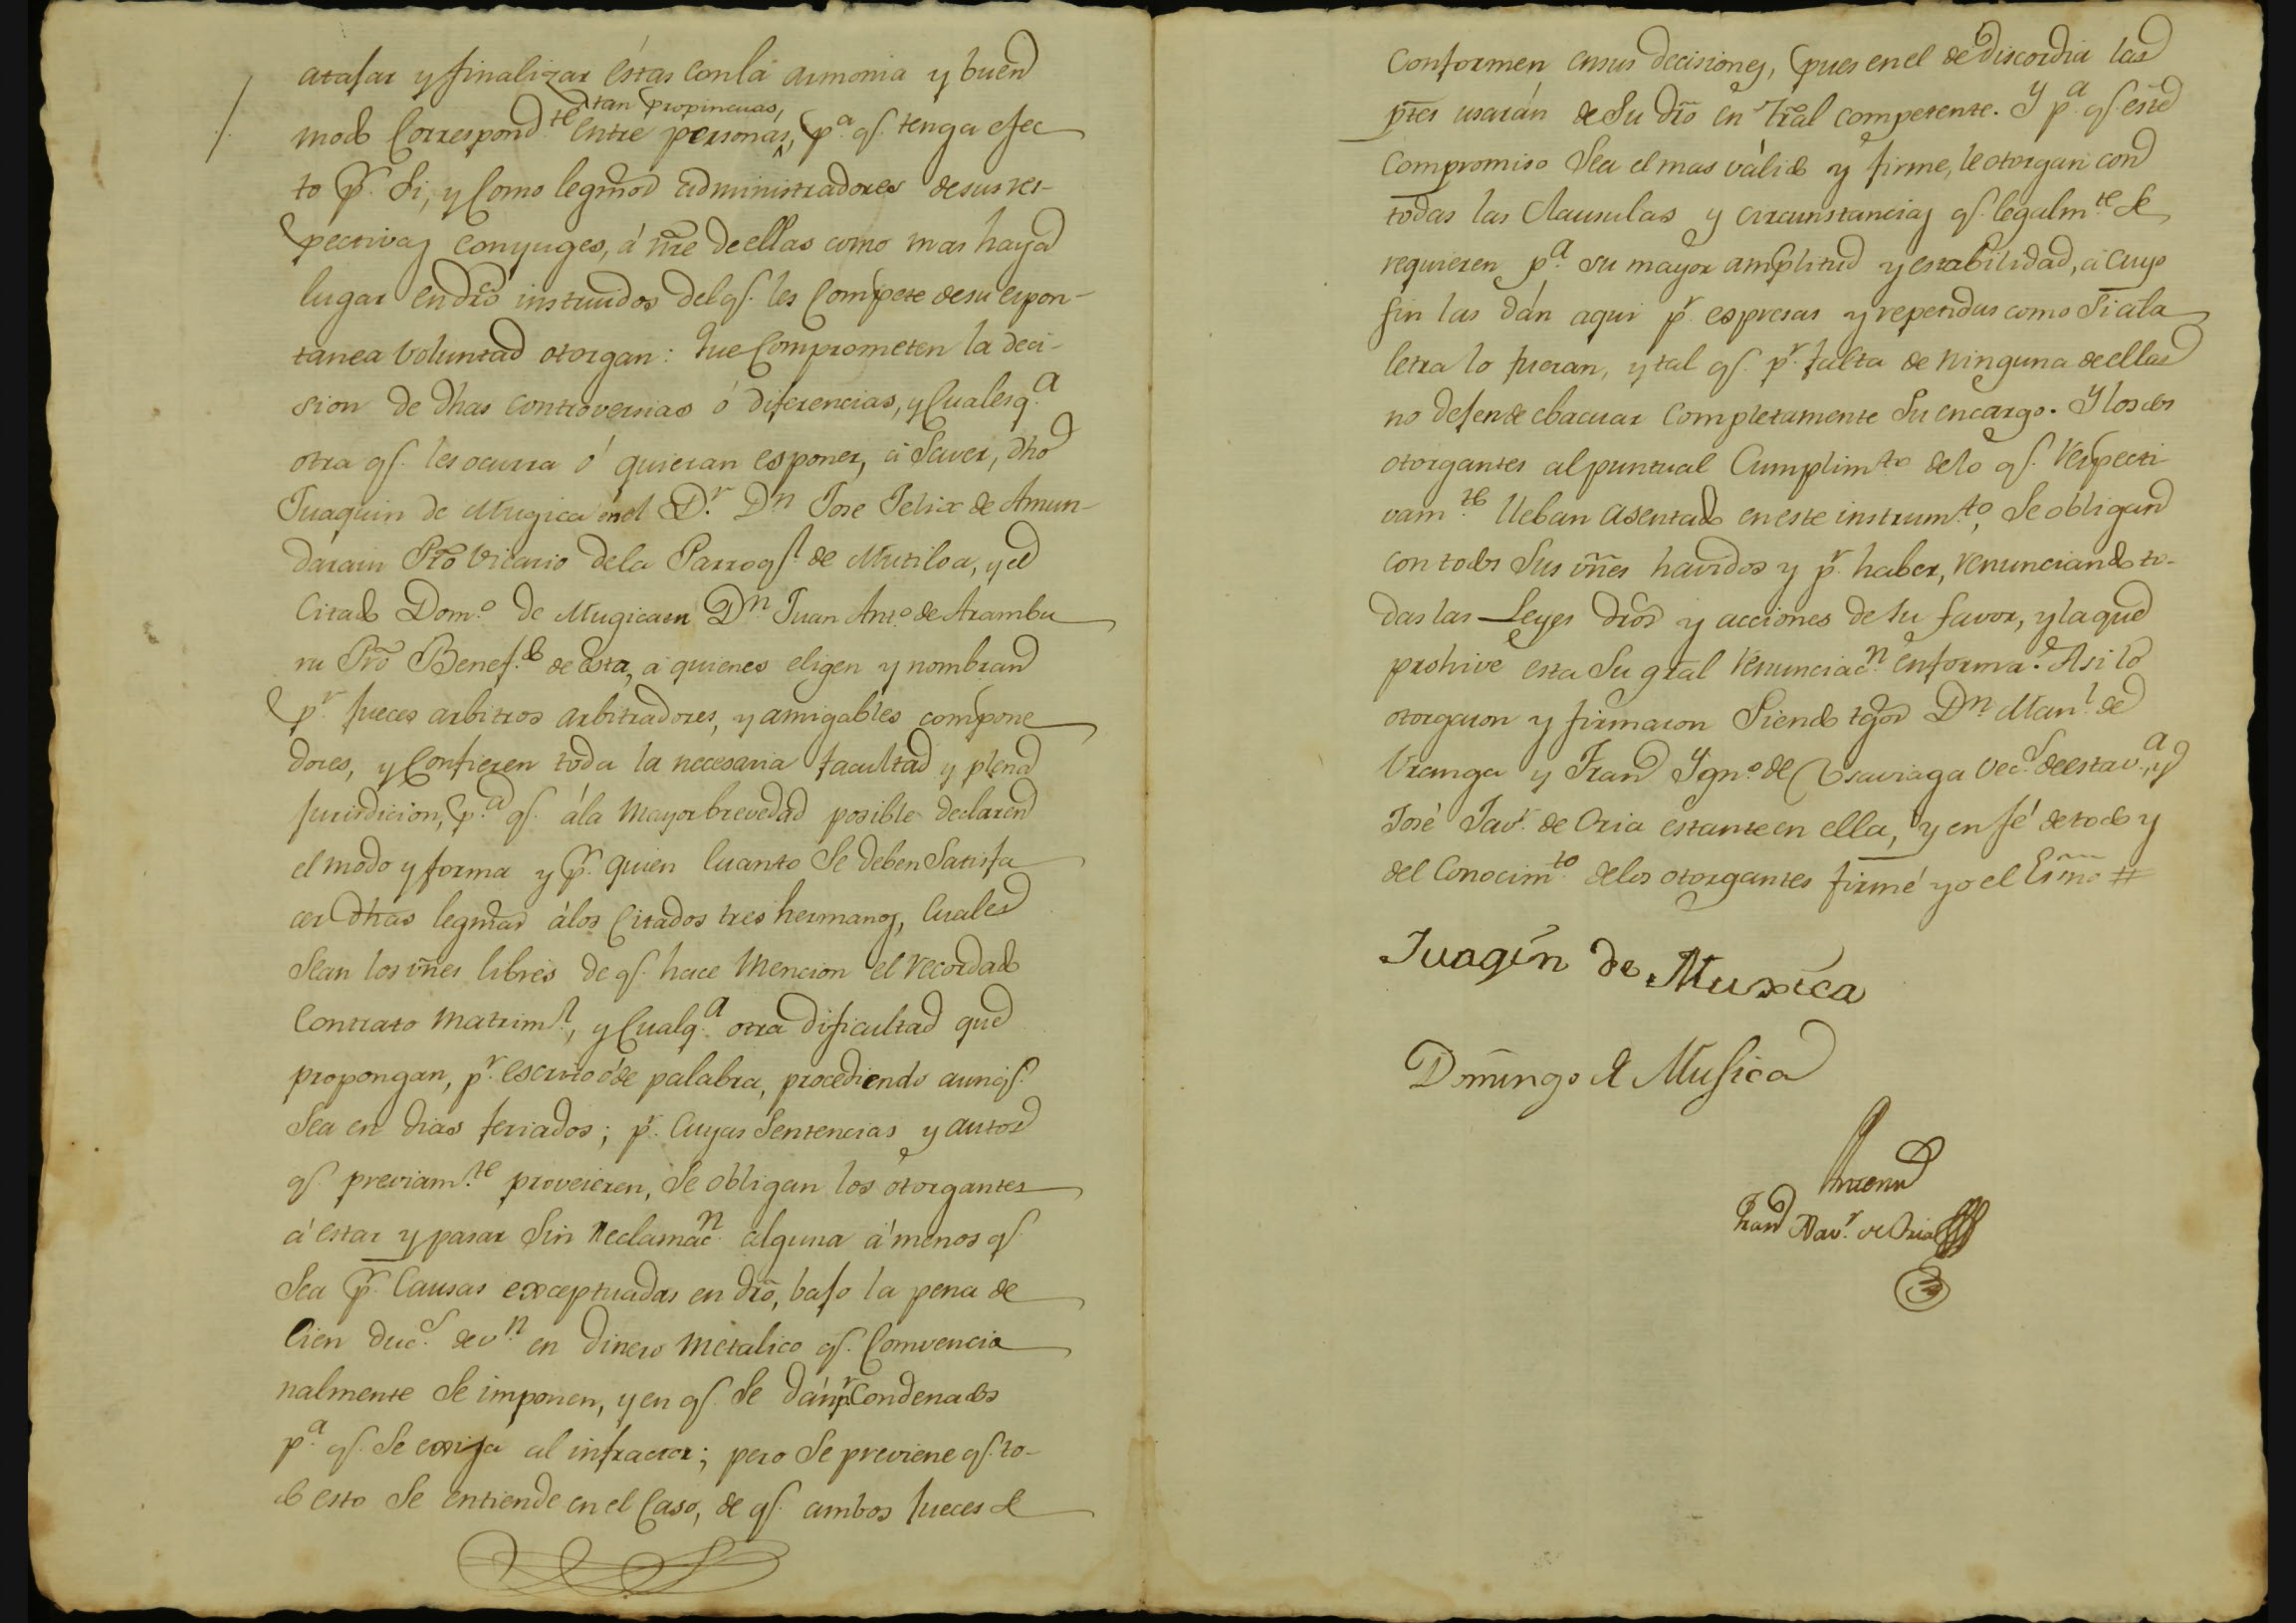 atajar y finalizar éstas con la armonia y buen
tan propincuas,
modo Correspond.te entre personas, p.a q.e tenga efec
to p.r Si, y Como legmos administradores de sus res-
pectivas Conyuges, á nre de ellas como mas haya
lugar en dro instruidos del q.e les Compete de su espon-
tanea voluntad otorgan: Que Comprometen la deci-
sion de dhas controversias ó diferencias, y Cualesq.a
otra q.e les ocurra ó quieran esponer, á Saver, dho
Juaquin de Mugica en el D.r D.n Jose Felix de Amun-
darain Pro Vicario de la Parroq.l de Mutiloa, y el
Citado Dom.o de Mugica en D.n Juan Ant.o de Arambu
ru Pro Benef.do de esta, á quienes eligen y nombran
p.r Jueces arbitros arbitradores, y amigables compone
dores, y Confieren toda la necesaria facultad y plena
Jurisdicion, p.a q.e á la Mayor brevedad posible declaren
el modo y forma y p.r quien Cuanto Se deben Satisfa
cer dhas legmas á los Citados tres hermanos, Cuales
Sean los vnes libres de q.e hace Mencion el recordado
Contrato Matrim.l, y Cualq.a otra dificultad que
propongan, p.r escrito ó de palabra, procediendo aunq.e
Sea en dias feriados; p.r Cuyas Sentencias y autos
q.e previam.te proveieren, Se obligan los otorgantes
á estar y pasar Sin Reclamac.n alguna á menos q.e
Sea p.r Causas exceptuadas en dro, bajo la pena de
Cien duc.s de v.n en dinero metalico q.e Comvencio
nalmente Se imponen, y en q.e Se dán p.r Condenados
p.a q.e Se exija al infractor; pero Se previene q.e to-
do esto Se entiende en el Caso, de q.e ambos Jueces se
Conformen en sus decisiones, pues en el de discordia las
ptes usarán de Su dro en Tral competente. Y p.a q.e este
Compromiso Sea el mas válido y firme, le otorgan con
todas las Clausulas y circunstancias q.e legalm.te se
requieren p.a su mayor amplitud y estabilidad, á Cuyo
fin las dán aqui p.r espresas y repetidas como Si á la
letra lo fueran, y tal q.e p.r falta de ninguna de ellas
no dejen de ebacuar Completamente Su encargo. Y los dos
otorgantes al puntual Cumplim.to de lo q.e respecti
vam.te lleban asentado en este instrum.to, Se obligan
con todos Sus vnes havidos y p.r haber, renunciando to-
das las Leyes dros y acciones de su favor, y la que
prohive esta Su gral renunciac.n en forma. Asi lo
otorgaron y firmaron Siendo tgos D.n Man.l de
Vranga y Fran.co Ygn.o de Vsaviaga vec.s de esta v.a, y
José Jav.r de Oria estante en ella, y en fé de todo y
del Conocim.to de los otorgantes firmé yo el Esno #
Juaqín de Muxica
Domingo de Musica
Antemi
Fran.co Xav.r de Oria